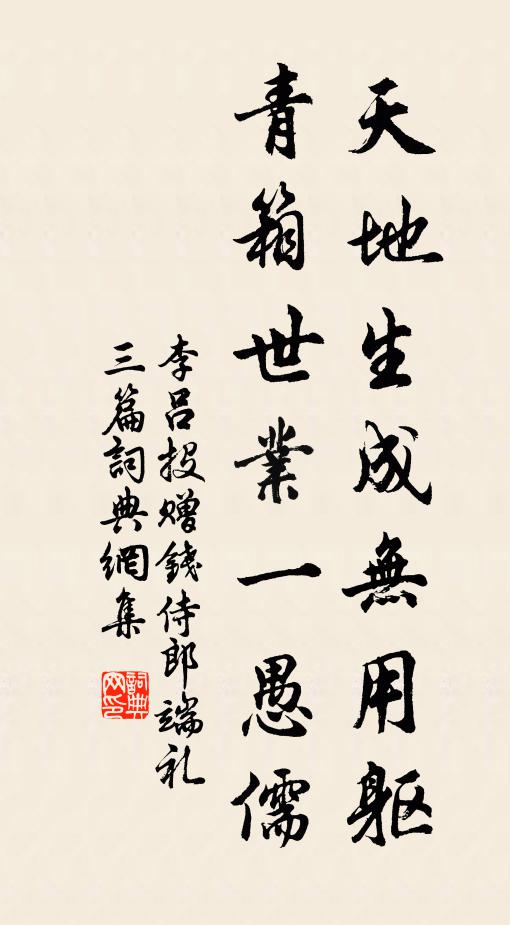 天地生成無用躯
青箱世業一愚儒
李吕投赠錢侍郎端礼
三篇詞典網集
詞典网印